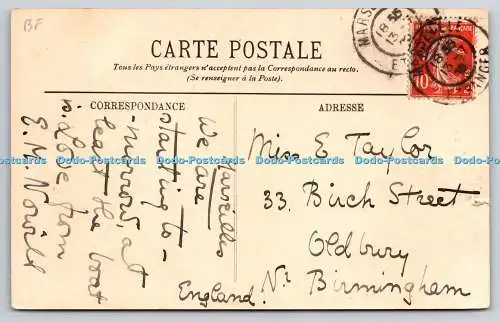 BF
CARTE POSTALE
Tous les Pays étrangers n'acceptent pas la Correspondance au recto.
(Se renseigner à la Poste).
CORRESPONDANCE
ADRESSE
Marseilles
We are
starting to-
-morrow, at
least the boat
is. Love from
E. H. Nowill
Miss E Taylor
33. Birch Street
Oldbury
Nr Birmingham
England.
MARS
10
Dodo-Postcards Dodo-Postcards Dodo-Postcards Dodo-Postcards Dodo-Postcards Dodo-Postcards